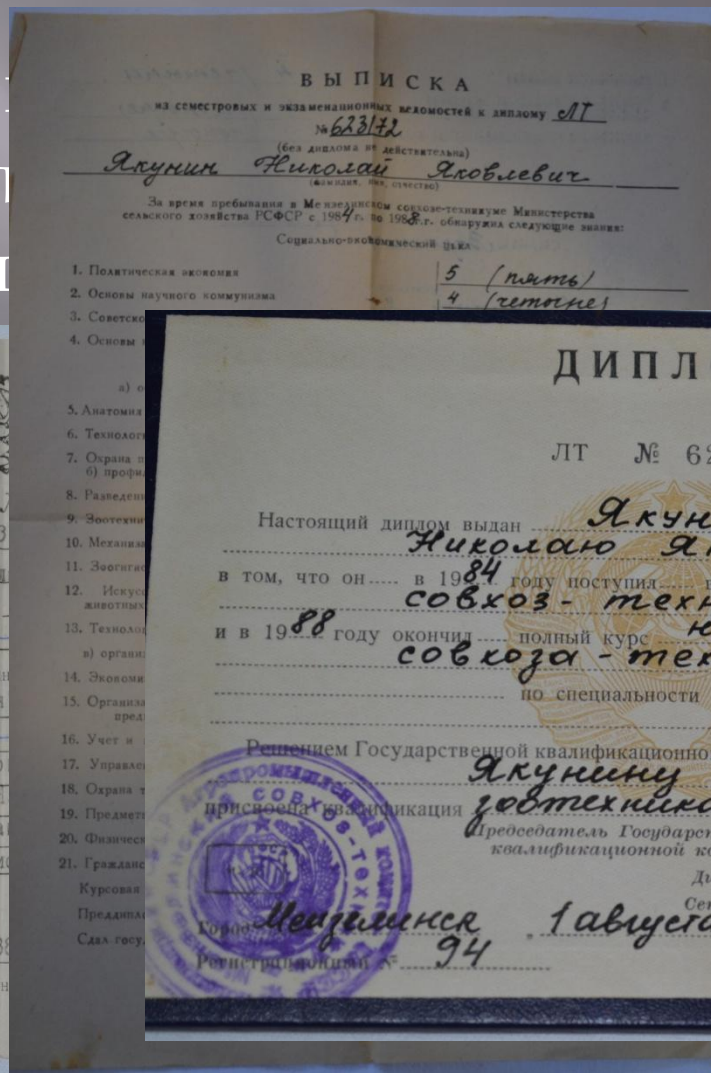 ВЫПИСКА
из семестровых и экзаменационных ведомостей к диплому ЛТ
№ 623172
(без диплома не действительна)
Якунин Николай Яковлевич
(фамилия, имя, отчество)
За время пребывания в Мензелинском совхозе-техникуме Министерства
сельского хозяйства РСФСР с 1984 г. по 1988 г.г. обнаружил следующие знания:
Социально-экономический цикл
1. Политическая экономия 5 (пять)
2. Основы научного коммунизма 4 (четыре)
3. Советско
4. Основы
а) о
5. Анатомия
6. Технолог
7. Охрана п
б) профи
8. Разведени
9. Зоотехни
10. Механиза
11. Зоогигие
12. Искусс
животных
13. Техноло
в) органи
14. Экономи
15. Организа
пред
16. Учет и
17. Управле
18. Охрана т
19. Предмет
20. Физическ
21. Гражданс
Курсовая
Преддипло
Сдал госу
ДИПЛ
ЛТ № 62
Настоящий диплом выдан Якун
Николаю Як
в том, что он в 1984 году поступил в
совхоз-техн
и в 1988 году окончил полный курс
совхоза-тех
по специальности
Решением Государственной квалификационно
Якунину
присвоена квалификация зоотехника
Председатель Государст
квалификационной ко
Ди
Сек
Город Мензелинск 1 августа
Регистрационный № 94